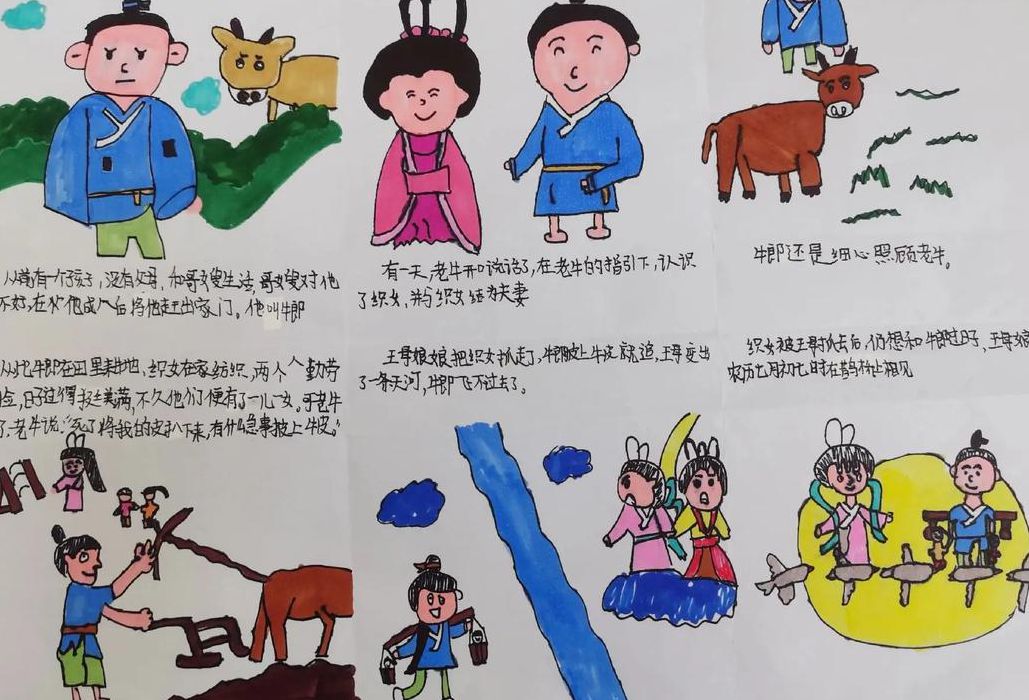 从前有一个孩子,没有父母,和哥嫂生活,哥嫂对他
不好,在他成人后将他赶出家门。他叫牛郎
有一天,老牛开口说话了,在老牛的指引下,认识
了织女,并与织女结为夫妻
牛郎还是细心照顾老牛。
从此牛郎在田里耕地,织女在家纺织,两个人勤劳
俭,日子过得挺美满,不久他们便有了一儿一女。可老牛
了,老牛说:“死了将我的皮扒下来,有什么急事披上牛皮。”
王母娘娘把织女抓走了,牛郎披上牛皮就追,王母变出
了一条天河,牛郎飞不过去了。
织女被王母抓去后,仍想和牛郎过日子,王母娘
农历七月初七时在鹊桥上相见